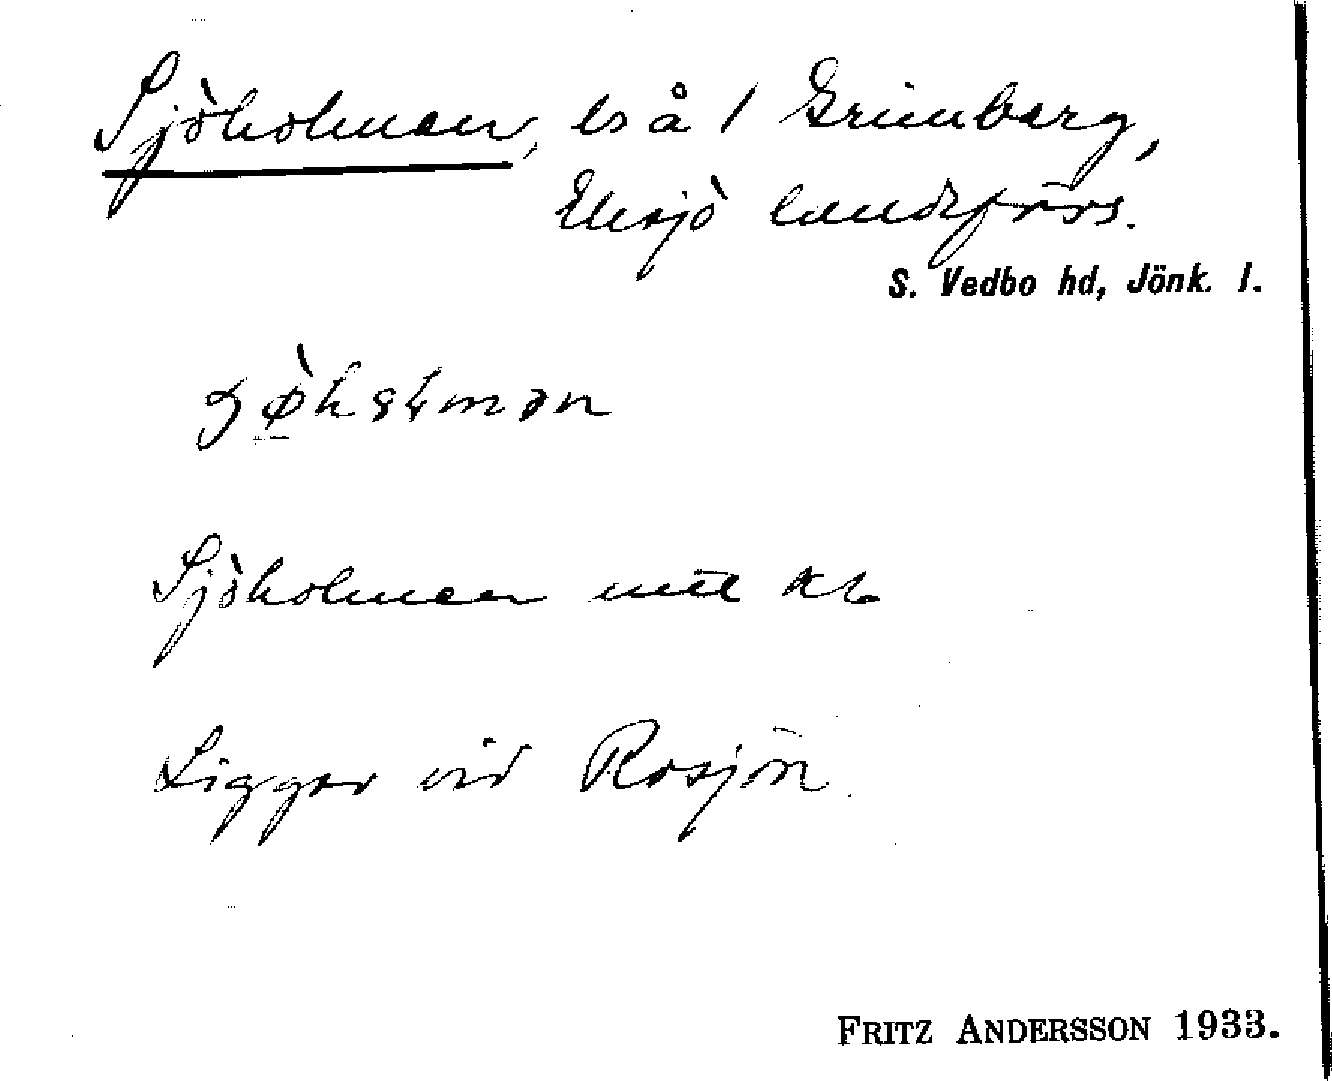 Sjöholmen, ls å 1 Grimberg,
Eksjö landsförs.
S. Vedbo hd, Jönk. l.
Sjöholmen
Ligger vid Rosjön.
FRITZ ANDERSSON 1933.